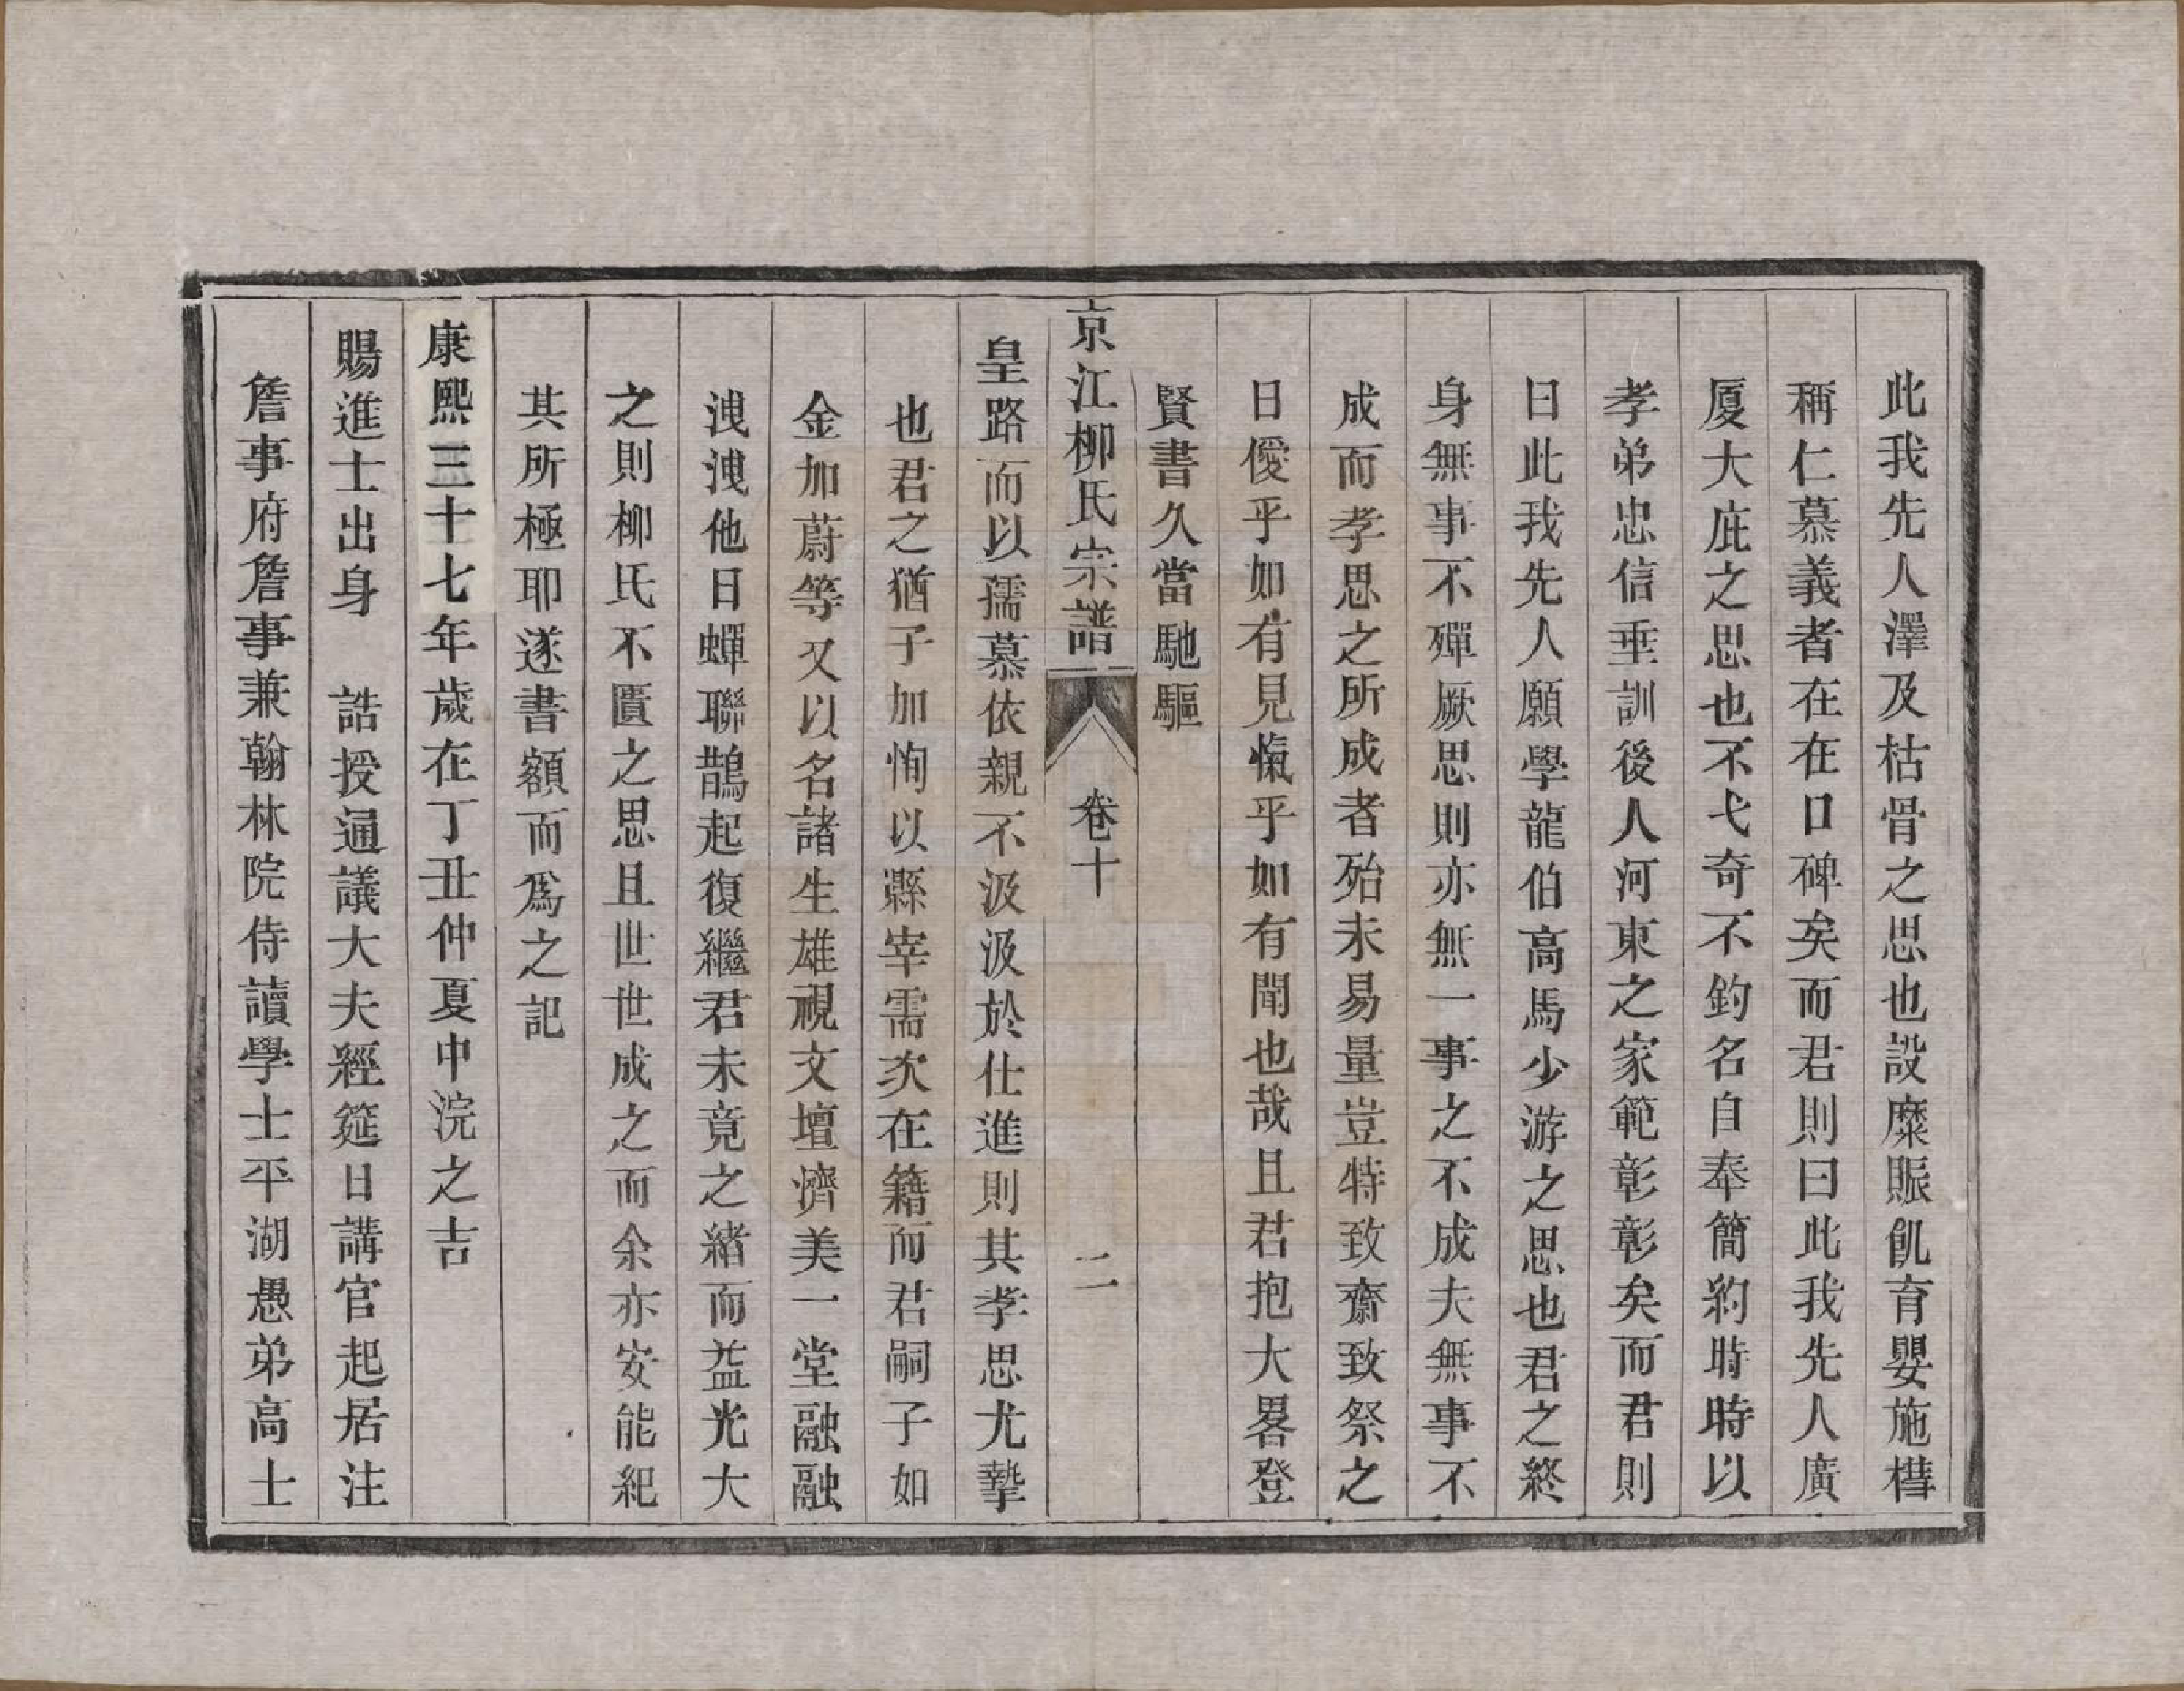 此我先人澤及枯骨之思也設糜賑飢育嬰施槥
稱仁慕義者在在口碑矣而君則曰此我先人廣
厦大庇之思也不弋奇不釣名自奉簡約時時以
孝弟忠信垂訓後人河東之家範彰彰矣而君則
曰此我先人願學龍伯高馬少游之思也君之終
身無事不殫厥思則亦無一事之不成夫無事不
成而孝思之所成者殆未易量豈特致齋致祭之
日僾乎如有見愾乎如有聞也哉且君抱大畧登
賢書久當馳驅
京江柳氏宗譜 卷十 二
皇路而以孺慕依親不汲汲於仕進則其孝思尤摯
也君之猶子加恂以縣宰需次在籍而君嗣子如
金加蔚等又以名諸生雄視文壇濟美一堂融融
洩洩他日蟬聯鵲起復繼君未竟之緒而益光大
之則柳氏不匱之思且世世成之而余亦安能紀
其所極耶遂書額而爲之記
康熙三十七年歲在丁丑仲夏中浣之吉
賜進士出身 誥授通議大夫經筵日講官起居注
詹事府詹事兼翰林院侍讀學士平湖愚弟高士